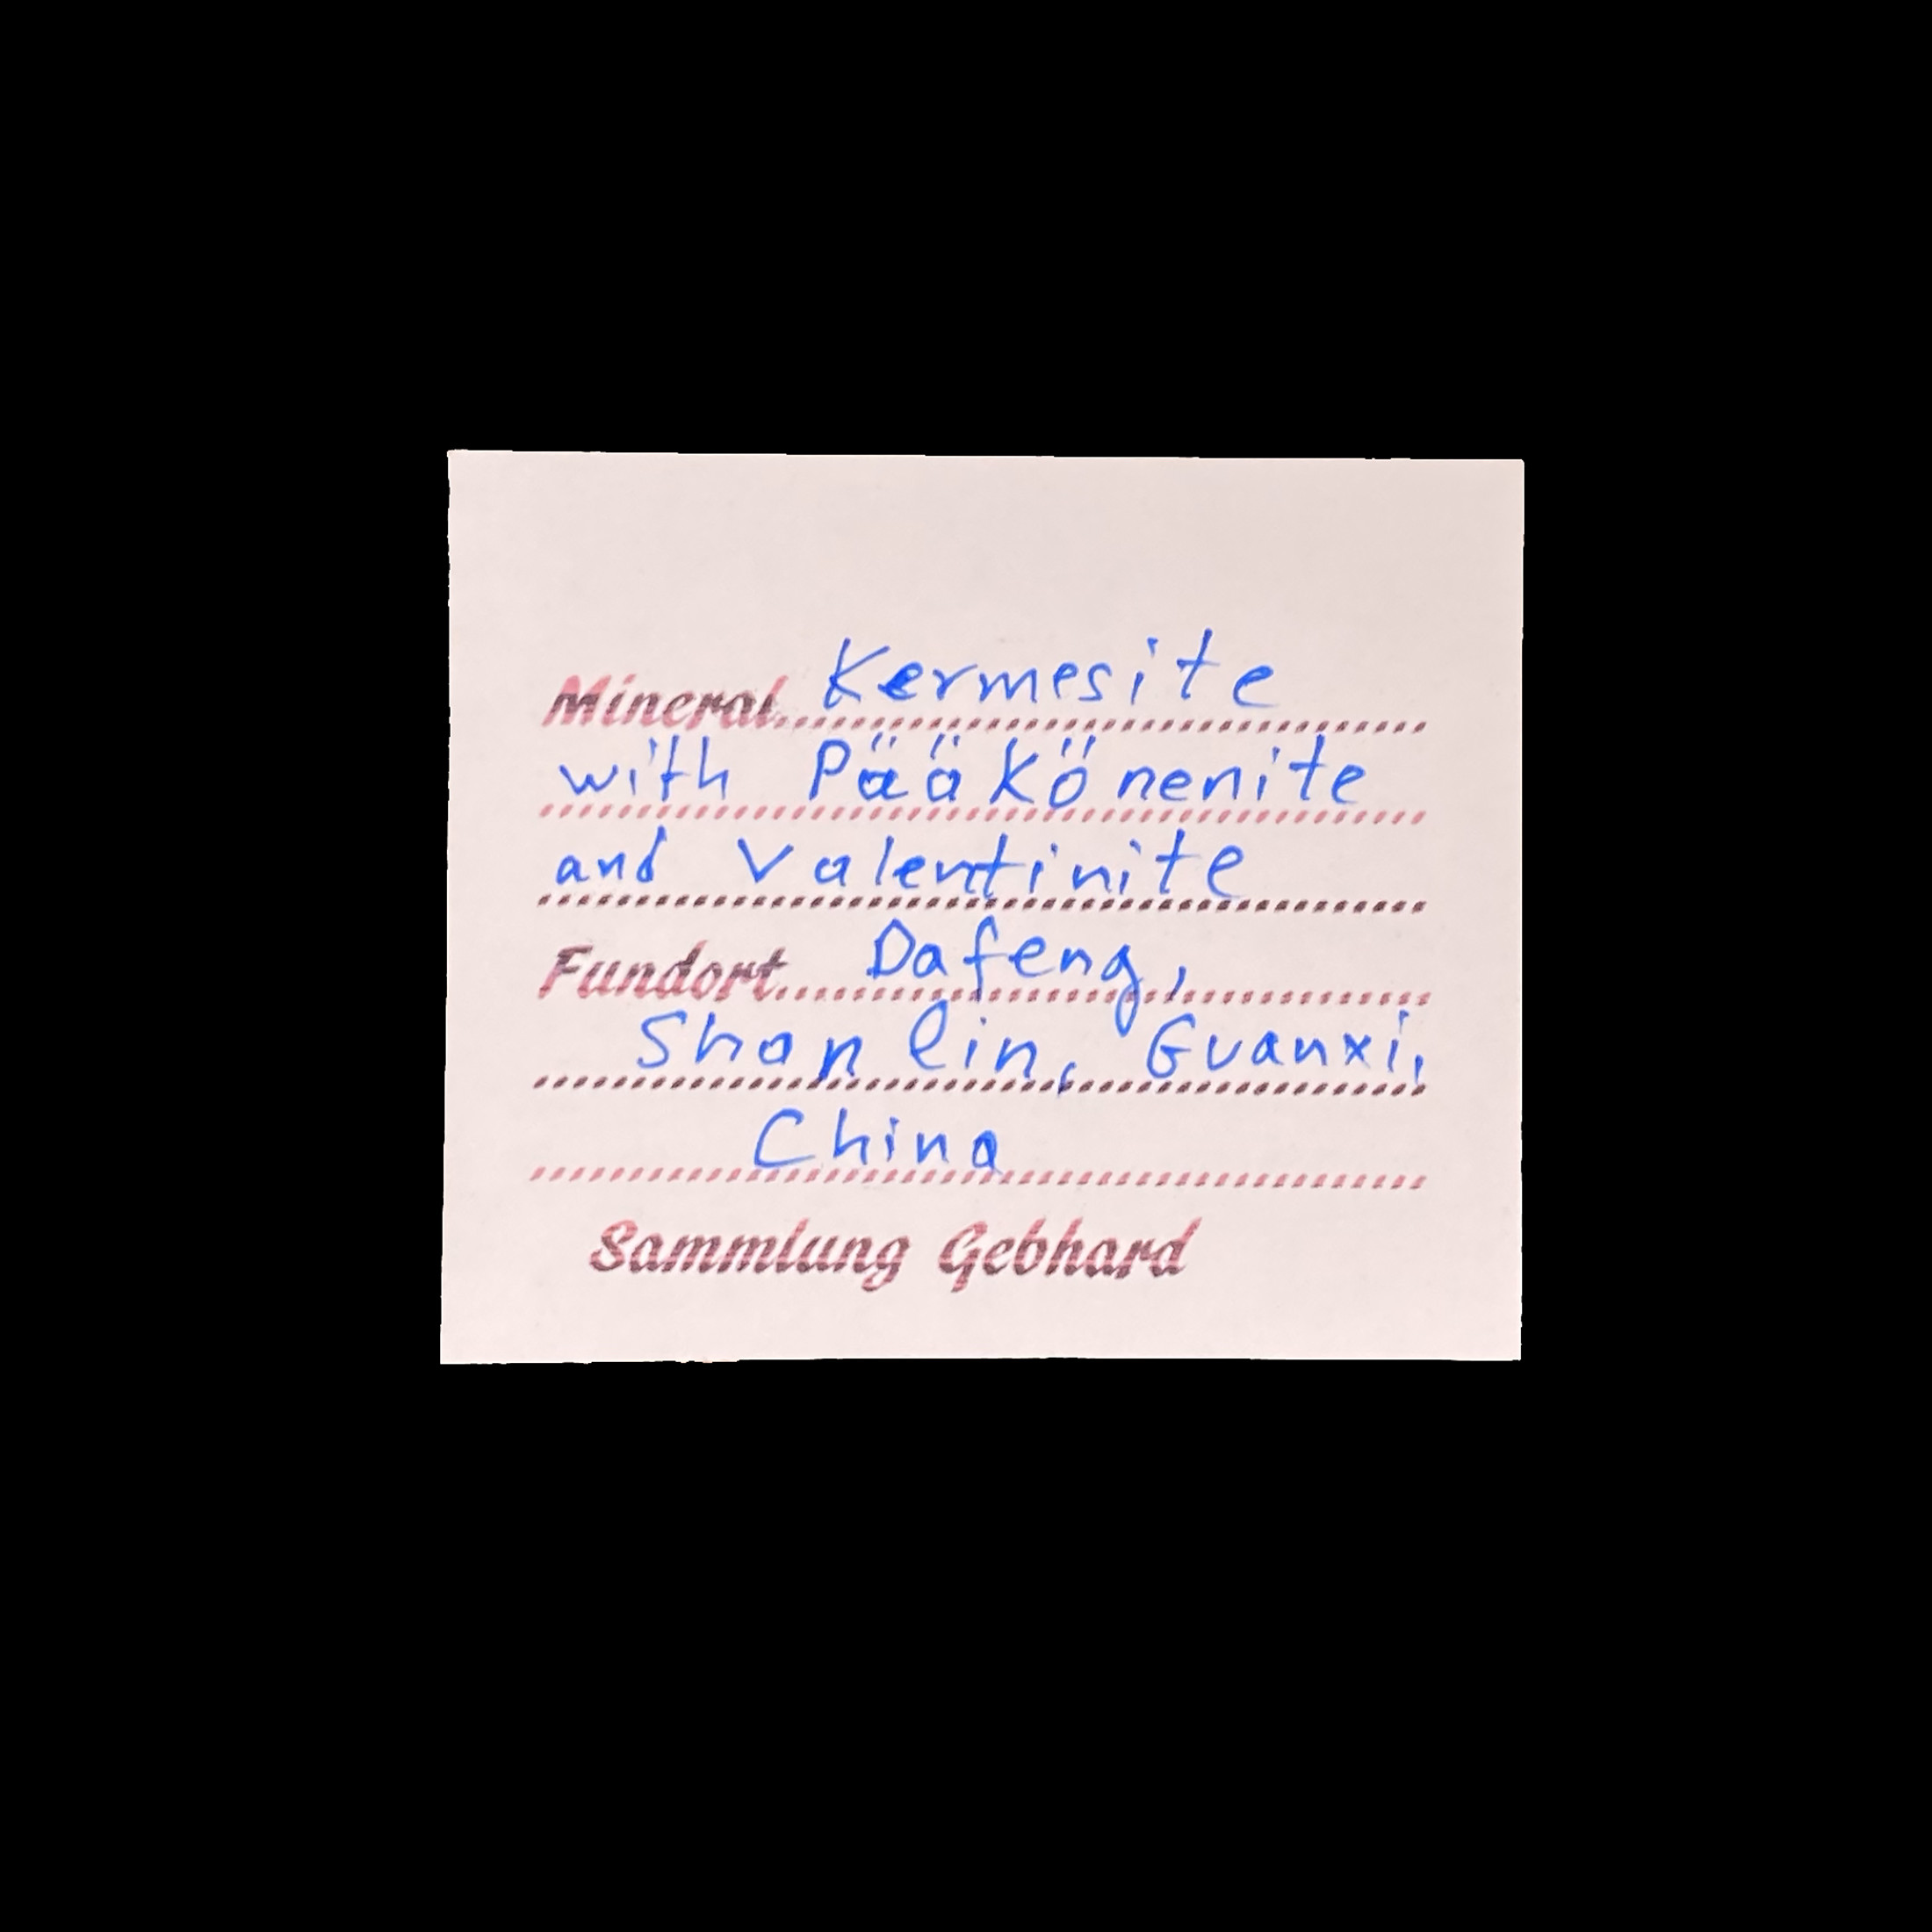 Mineral Kermesite
with Pääkönenite
and Valentinite
Fundort Dafeng,
Shanlin, Guanxi,
China
Sammlung Gebhard